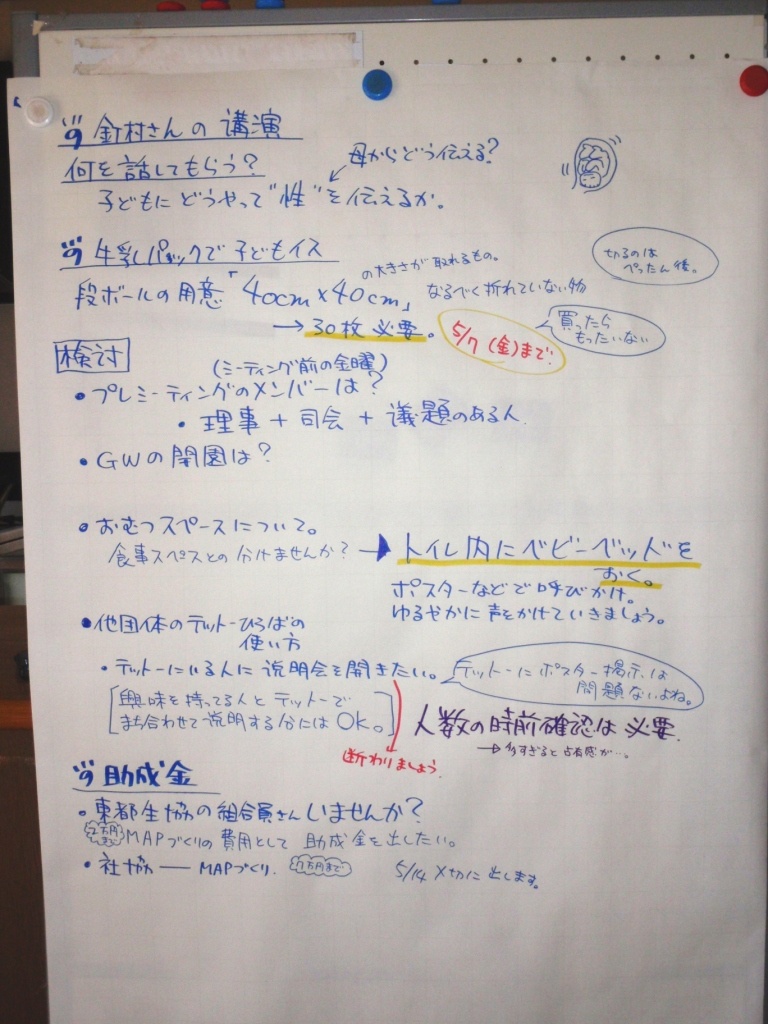 釘村さんの講演
何を話してもらう?
母からどう伝える?
子どもにどうやって"性"を伝えるか。
牛乳パックで子どもイス
切るのは
ぺったん後。
段ボールの用意「40cm×40cm」の大きさが取れるもの。
なるべく折れていない物
→30枚必要。
5/7(金)まで
買ったら
もったいない
検討
(ミーティング前の金曜)
・プレミーティングのメンバーは?
・理事+司会+議題のある人
・GWの開園は?
・おむつスペースについて。
食事スペスとの分けませんか?→トイレ内にベビーベッドを
おく。
ポスターなどで呼びかけ。
ゆるやかに声をかけていきましょう。
・他団体のデットーひろばの
使い方
・デットーにいる人に説明会を開きたい。
デットーにポスター掲示は
問題ないよね。
[興味を持ってる人とデットーで
まち合わせて説明する分にはOK。]
断わりましょう
人数の時前確認は必要。
→多すぎると占有感が…。
助成金
・東都生協の組合員さんいませんか?
MAPづくりの費用として助成金を出したい。
・社協―MAPづくり. 7万円まで
5/14〆切に出します。